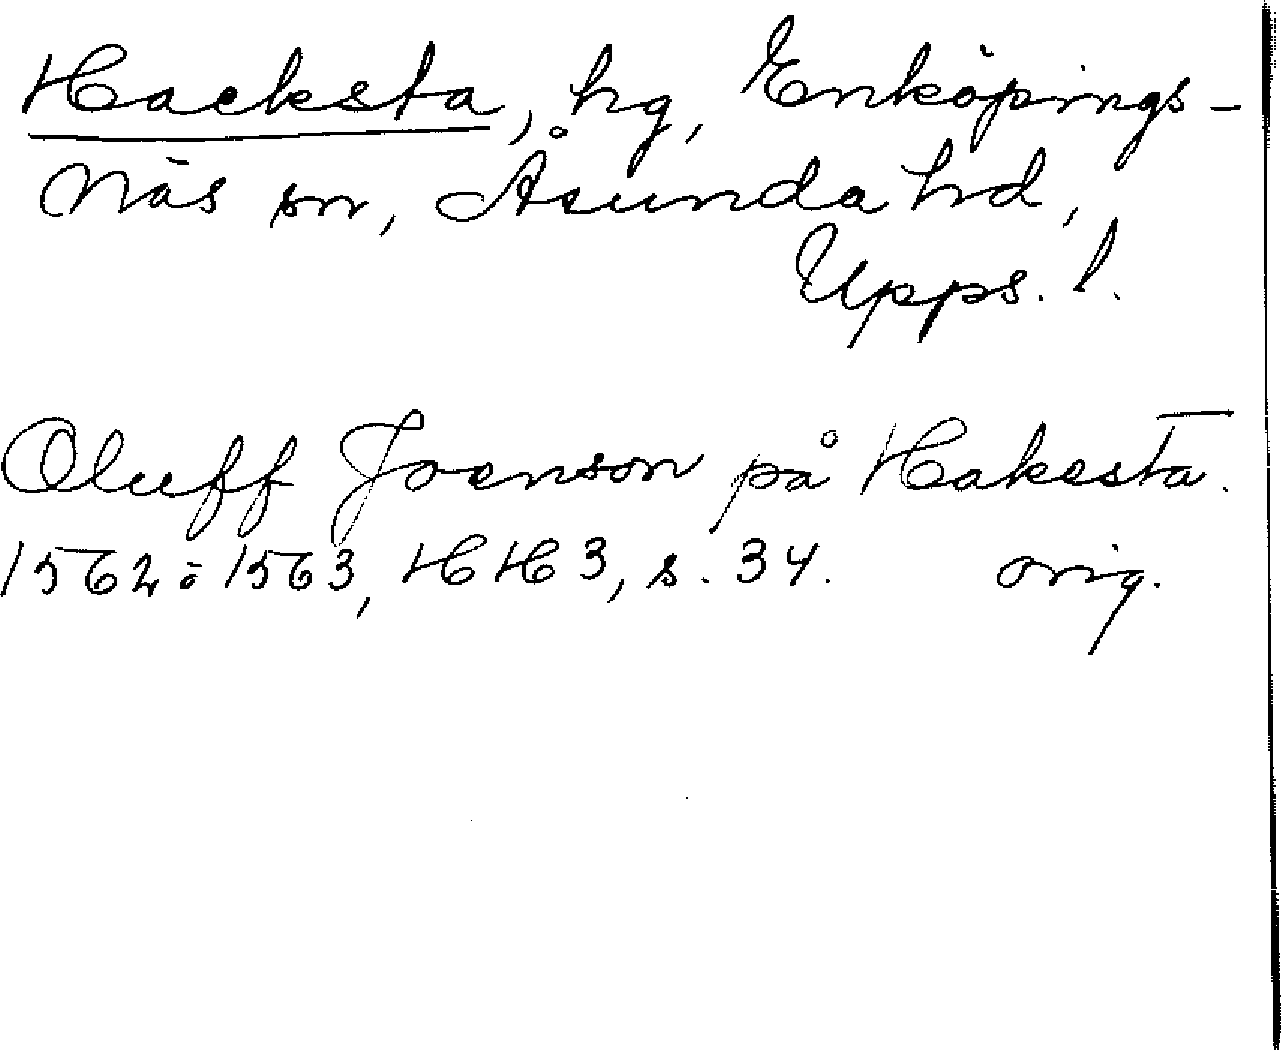 Hacksta, hg, Enköpings-
Näs sn, Åsunda hd,
Upps. l.
Oluff Joenson på Hakesta.
1562 o 1563, HH 3, s. 34. orig.